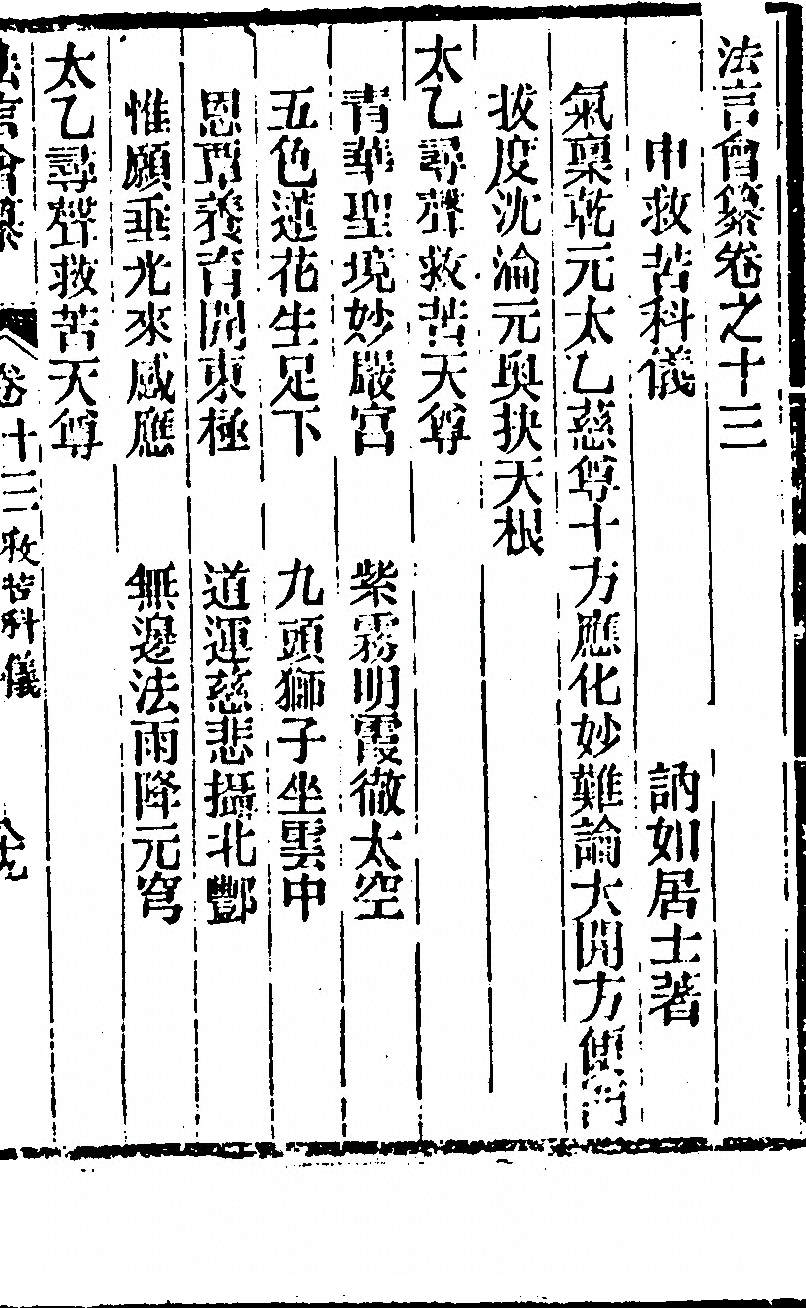 法言會纂卷之十三
申救苦科儀 訥如居士著
氣稟乾元太乙慈尊十方應化妙難論大開方便門
拔度沈淪元奥抉天根
太乙尋聲救苦天尊
青華聖境妙嚴宮 紫霧明霞徹太空
五色蓮花生足下 九頭獅子坐雲中
恩覃養育開東極 道運慈悲攝北酆
惟願垂光來感應 無邊法雨降元穹
太乙尋聲救苦天尊
法言會纂 卷十三 救苦科儀